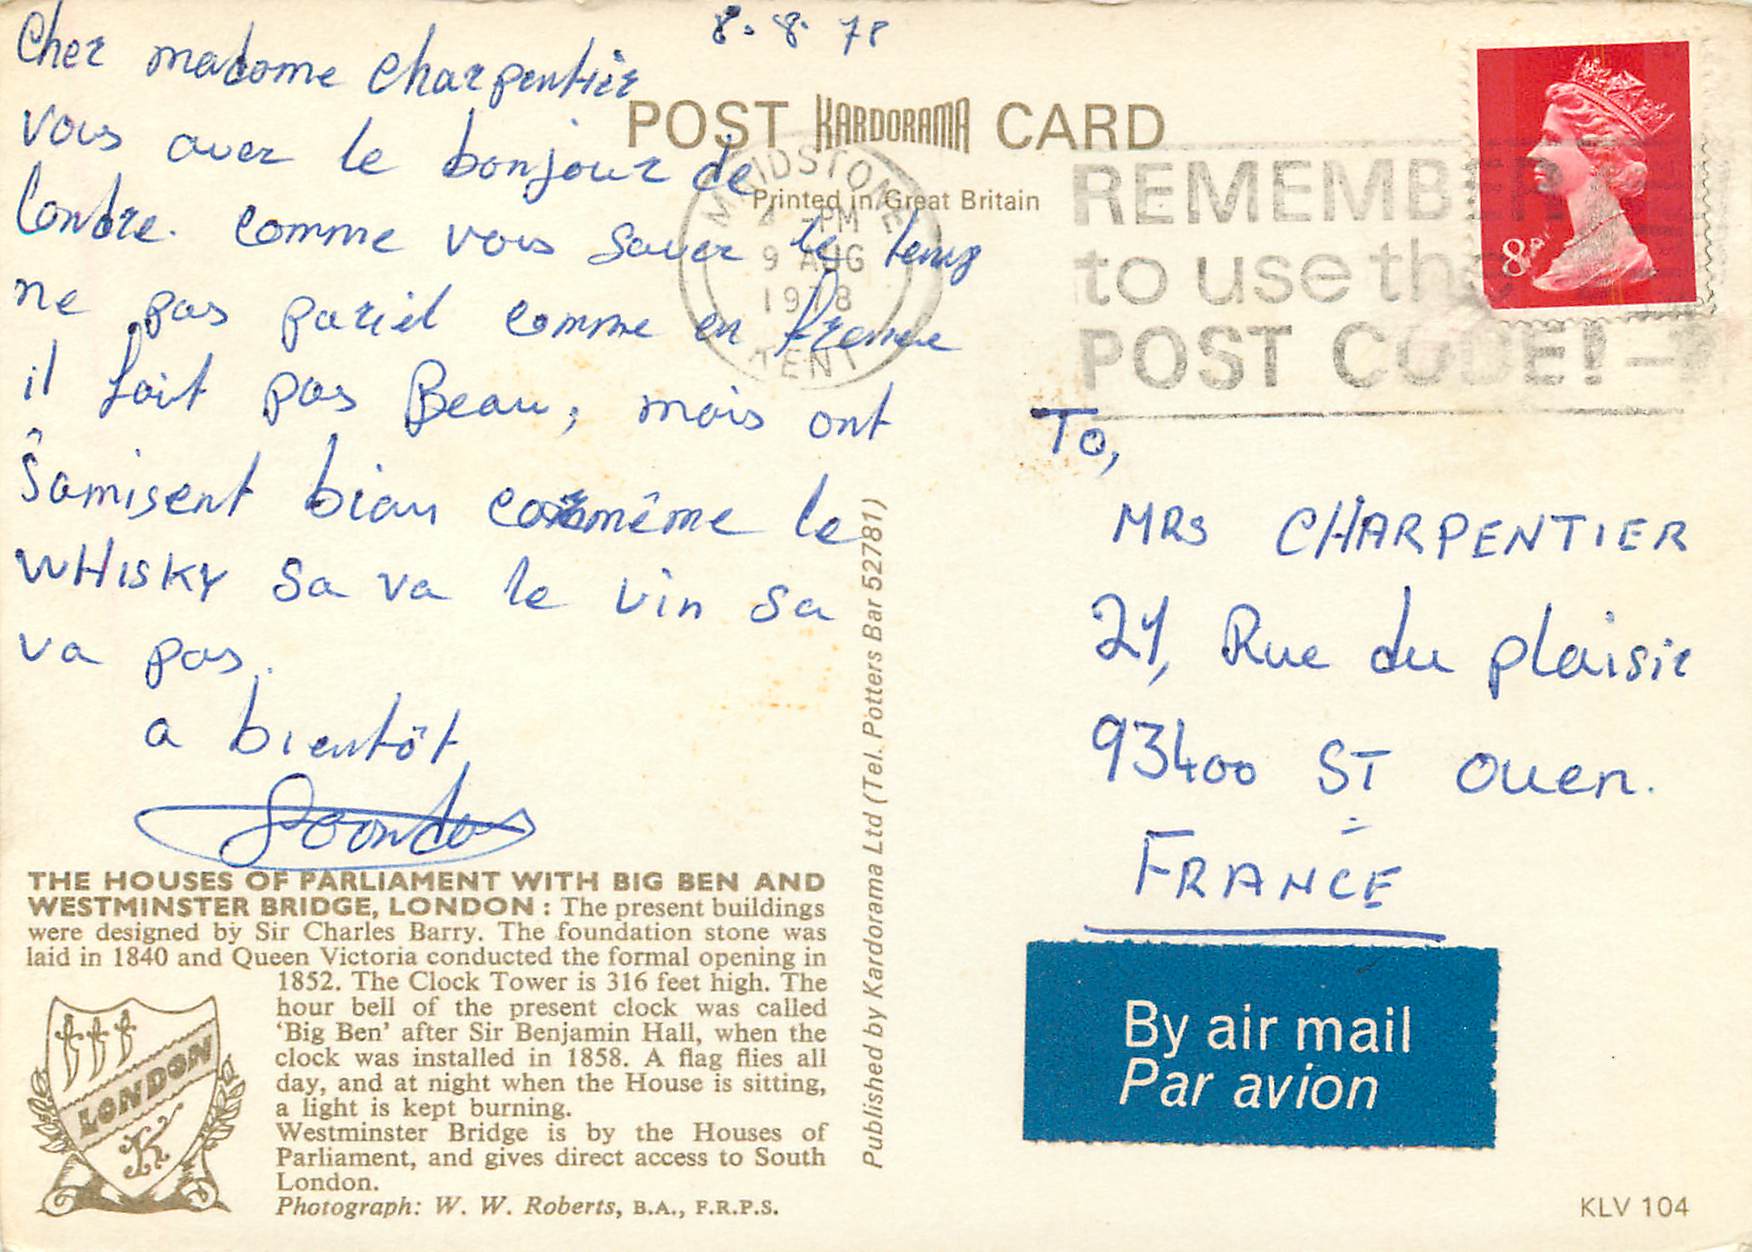 8.8.78
Cher madame Charpentier
vous aver le bonjour de
Londre. comme vous saver le temp
ne pas pariel comme en france
il fait pas Beau, mais ont
samisent bian commême le
WHISKY sa va le vin sa
va pas.
a bientôt
POST KARDORAMA CARD
Printed in Great Britain
MAIDSTONE
4 - PM
9 AUG
1978
KENT
REMEMBER
to use the
POST CODE!
8P
To,
MRS CHARPENTIER
21, Rue du plaisir
93400 ST ouen.
FRANCE
By air mail
Par avion
Published by Kardorama Ltd (Tel. Potters Bar 52781)
THE HOUSES OF PARLIAMENT WITH BIG BEN AND
WESTMINSTER BRIDGE, LONDON : The present buildings
were designed by Sir Charles Barry. The foundation stone was
laid in 1840 and Queen Victoria conducted the formal opening in
1852. The Clock Tower is 316 feet high. The
hour bell of the present clock was called
'Big Ben' after Sir Benjamin Hall, when the
clock was installed in 1858. A flag flies all
day, and at night when the House is sitting,
a light is kept burning.
Westminster Bridge is by the Houses of
Parliament, and gives direct access to South
London.
Photograph: W. W. Roberts, B.A., F.R.P.S.
LONDON
K
KLV 104